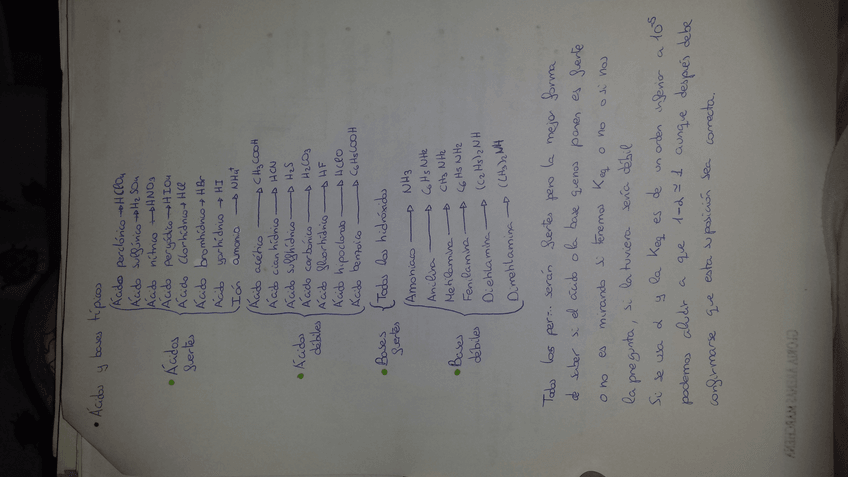 • Ácidos y bases típicos
Ácido perclórico → HClO4
Ácido sulfúrico → H2SO4
Ácido nítrico → HNO3
• Ácidos fuertes
Ácido peryódico → HIO4
Ácido clorhídrico → HCl
Ácido bromhídrico → HBr
Ácido yorhídrico → HI
Ión amonio → NH4+
Ácido acético → CH3COOH
Ácido cianhídrico → HCN
Ácido sulfhídrico → H2S
• Ácidos débiles
Ácido carbónico → H2CO3
Ácido fluorhídrico → HF
Ácido hipocloroso → HClO
Ácido benzoico → C6H5COOH
• Bases fuertes
Todos los hidróxidos
Amoniaco → NH3
Anilina → C6H5NH2
Metilamina → CH3NH2
• Bases débiles
Fenilamina → C6H5NH2
Dietilamina → (C2H5)2NH
Dimetilamina → (CH3)2NH
Todos los per-... serán fuertes pero la mejor forma
de saber si el ácido o la base que nos ponen es fuerte
o no es mirando si tenemos Keq o no o si nos
la pregunta, si la tuviera sería débil
Si se usa α y la Keq es de un orden inferior a 10-5
podemos aludir a que 1-α ≃ 1 aunque después debe
confirmarse que esta suposición sea correcta.